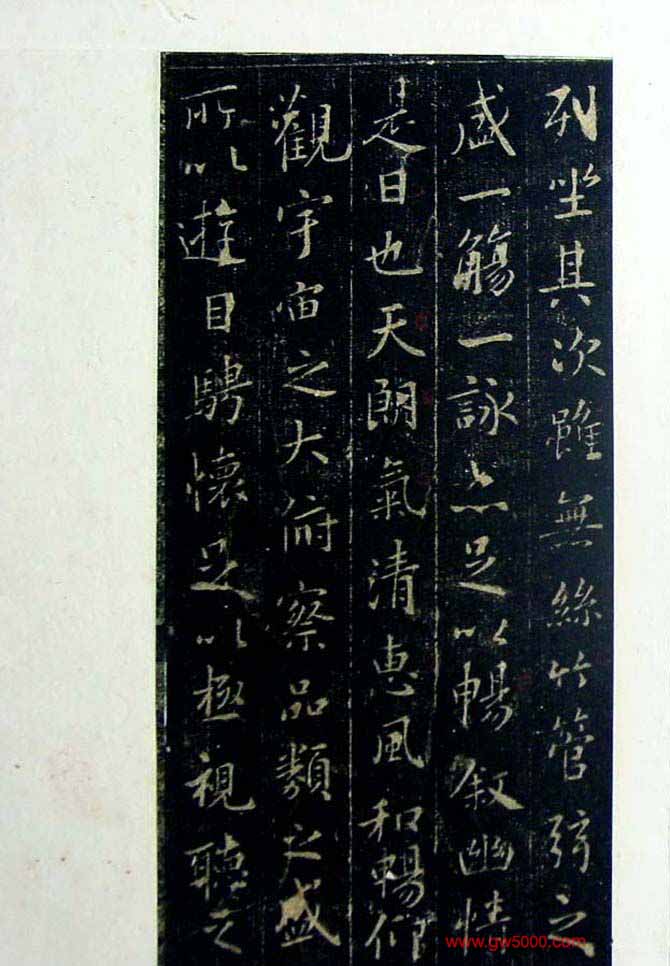 列坐其次雖無絲竹管弦之
盛一觴一詠亦足以暢敘幽情
是日也天朗氣清惠風和暢仰
觀宇宙之大俯察品類之盛
所以遊目騁懷足以極視聽之
www.gw5000.com